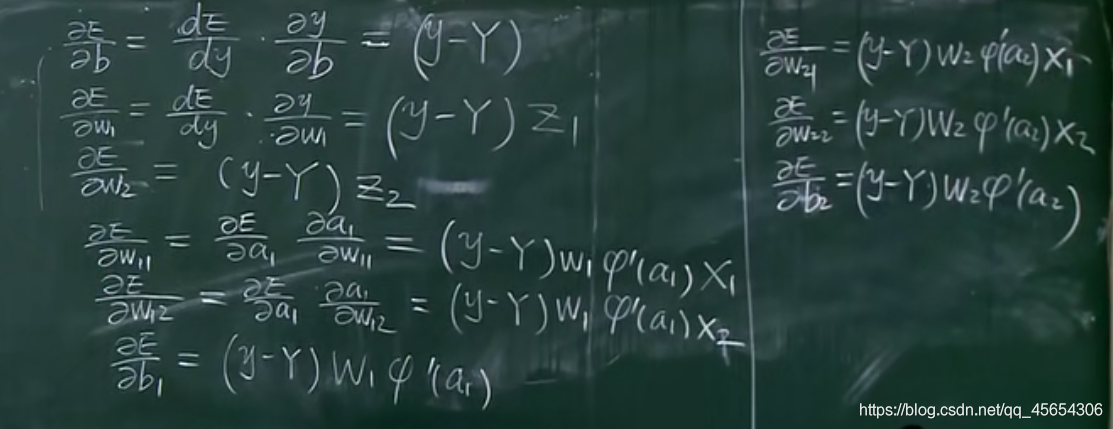 ∂E/∂b = dE/dy · ∂y/∂b = (y-Y)
∂E/∂w₁ = dE/dy · ∂y/∂w₁ = (y-Y) z₁
∂E/∂w₂ = (y-Y) z₂
∂E/∂w₁₁ = ∂E/∂a₁ ∂a₁/∂w₁₁ = (y-Y)w₁ φ'(a₁) x₁
∂E/∂w₁₂ = ∂E/∂a₁ · ∂a₁/∂w₁₂ = (y-Y)w₁ φ'(a₁) x₂
∂E/∂b₁ = (y-Y) w₁ φ'(a₁)
∂E/∂w₂₁ = (y-Y) w₂ φ'(a₂) x₁
∂E/∂w₂₂ = (y-Y) w₂ φ'(a₂) x₂
∂E/∂b₂ = (y-Y) w₂ φ'(a₂)
https://blog.csdn.net/qq_45654306